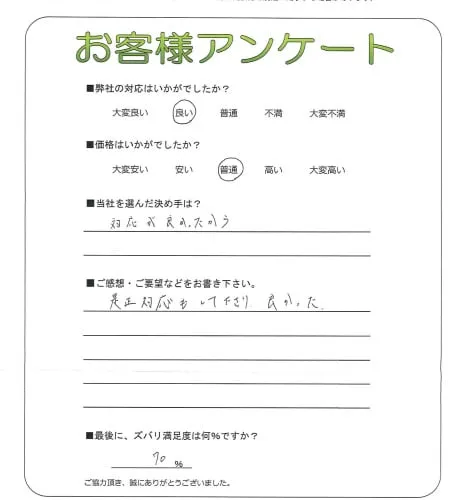 お客様アンケート
■弊社の対応はいかがでしたか？
大変良い 良い 普通 不満 大変不満
■価格はいかがでしたか？
大変安い 安い 普通 高い 大変高い
■当社を選んだ決め手は？
対応が良かったから
■ご感想・ご要望などをお書き下さい。
是正対応もして下さり 良かった
■最後に、ズバリ満足度は何％ですか？
70 ％
ご協力頂き、誠にありがとうございました。